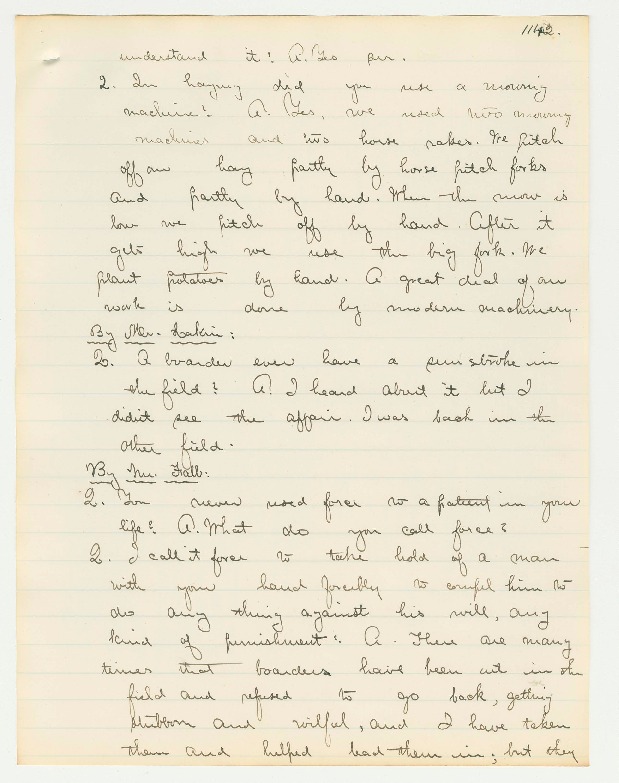 1142.
understand it? A. Yes sir.
Q. In haying did you use a mowing
machine? A. Yes, we used two mowing
machines and two horse rakes. We pitch
off our hay partly by horse pitch forks
and partly by hand. When the mow is
low we pitch off by hand. After it
gets high we use the big fork. We
plant potatoes by hand. A great deal of our
work is done by modern machinery.
By Mr. Lakin:
Q. A boarder ever have a sunstroke in
the field? A. I heard about it but I
didn't see the affair. I was back in the
other field.
By Mr. Fall:
Q. You never used force to a patient in your
life? A. What do you call force?
Q. I call it force to take hold of a man
with your hand forcibly to compel him to
do any thing against his will, any
kind of punishment? A. There are many
times that boarders have been out in the
field and refused to go back, getting
stubborn and wilful, and I have taken
them and helped lead them in; but they